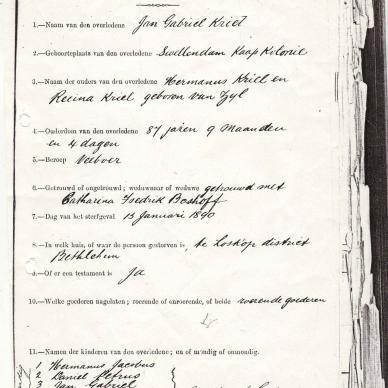 1.—Naam van den overledene Jan Gabriel Kriel
2.—Geboorteplaats van den overledene Swellendam Kaap Kolonie
3.—Namen der ouders van den overledene Hermanus Kriel en
Recina Kriel geboren van Zyl
4.—Ouderdom van den overledene 87 jaren 9 Maanden
en 4 dagen
5.—Beroep Veeboer
6.—Getrouwd of ongetrouwd; weduwnaar of weduwe getrouwd met
Catharina Fredrik Boshoff
7.—Dag van het sterfgeval 13 Januari 1890
8.—In welk huis, of waar de persoon gestorven is, te Loskop district
Bethlehem
9.—Of er een testament is Ja
10.—Welke goederen nagelaten; roerende of onroerende, of beide roerende goederen
11.—Namen der kinderen van den overledene; en of mondig of onmondig.
1 Hermanus Jacobus
2 Daniel Petrus
3 Jan Gabriel